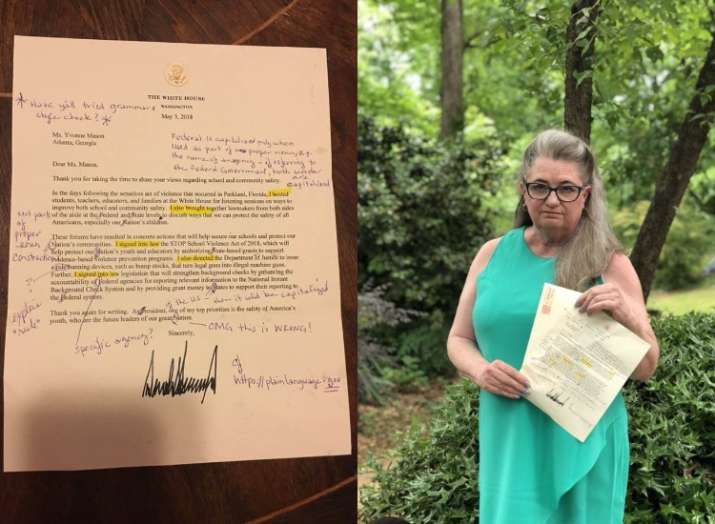 * Have y'all tried grammar & style check? *
THE WHITE HOUSE
WASHINGTON
May 3, 2018
Federal is capitalized only when
used as part of a proper noun, e.g.
the name of an agency - if referring to
the Federal Government, both words
are
capitalized
Ms. Yvonne Mason
Atlanta, Georgia
Dear Ms. Mason,
Thank you for taking the time to share your views regarding school and community safety.
In the days following the senseless act of violence that occurred in Parkland, Florida, I hosted
students, teachers, educators, and families at the White House for listening sessions on ways to
improve both school and community safety. I also brought together lawmakers from both sides
of the aisle at the Federal and State levels to discuss ways that we can protect the safety of all
Americans, especially our Nation's children.
Not part
of
proper
noun
construction
These forums have resulted in concrete actions that will help secure our schools and protect our
Nation's communities. I signed into law the STOP School Violence Act of 2018, which will
help protect our Nation's youth and educators by authorizing State-based grants to support
evidence-based violence prevention programs. I also directed the Department of Justice to issue
a rule banning devices, such as bump stocks, that turn legal guns into illegal machine guns.
Further, I signed into law legislation that will strengthen background checks by enhancing the
accountability of Federal agencies for reporting relevant information to the National Instant
Background Check System and by providing grant money to States to support their reporting to
the Federal system.
?
explain
"rule"
Thank you again for writing. As President, one of my top priorities is the safety of America's
youth, who are the future leaders of our great Nation.
of the US - then it would be capitalized
specific agency?
OMG this is WRONG!
Sincerely,
cf
https://plainlanguage.gov